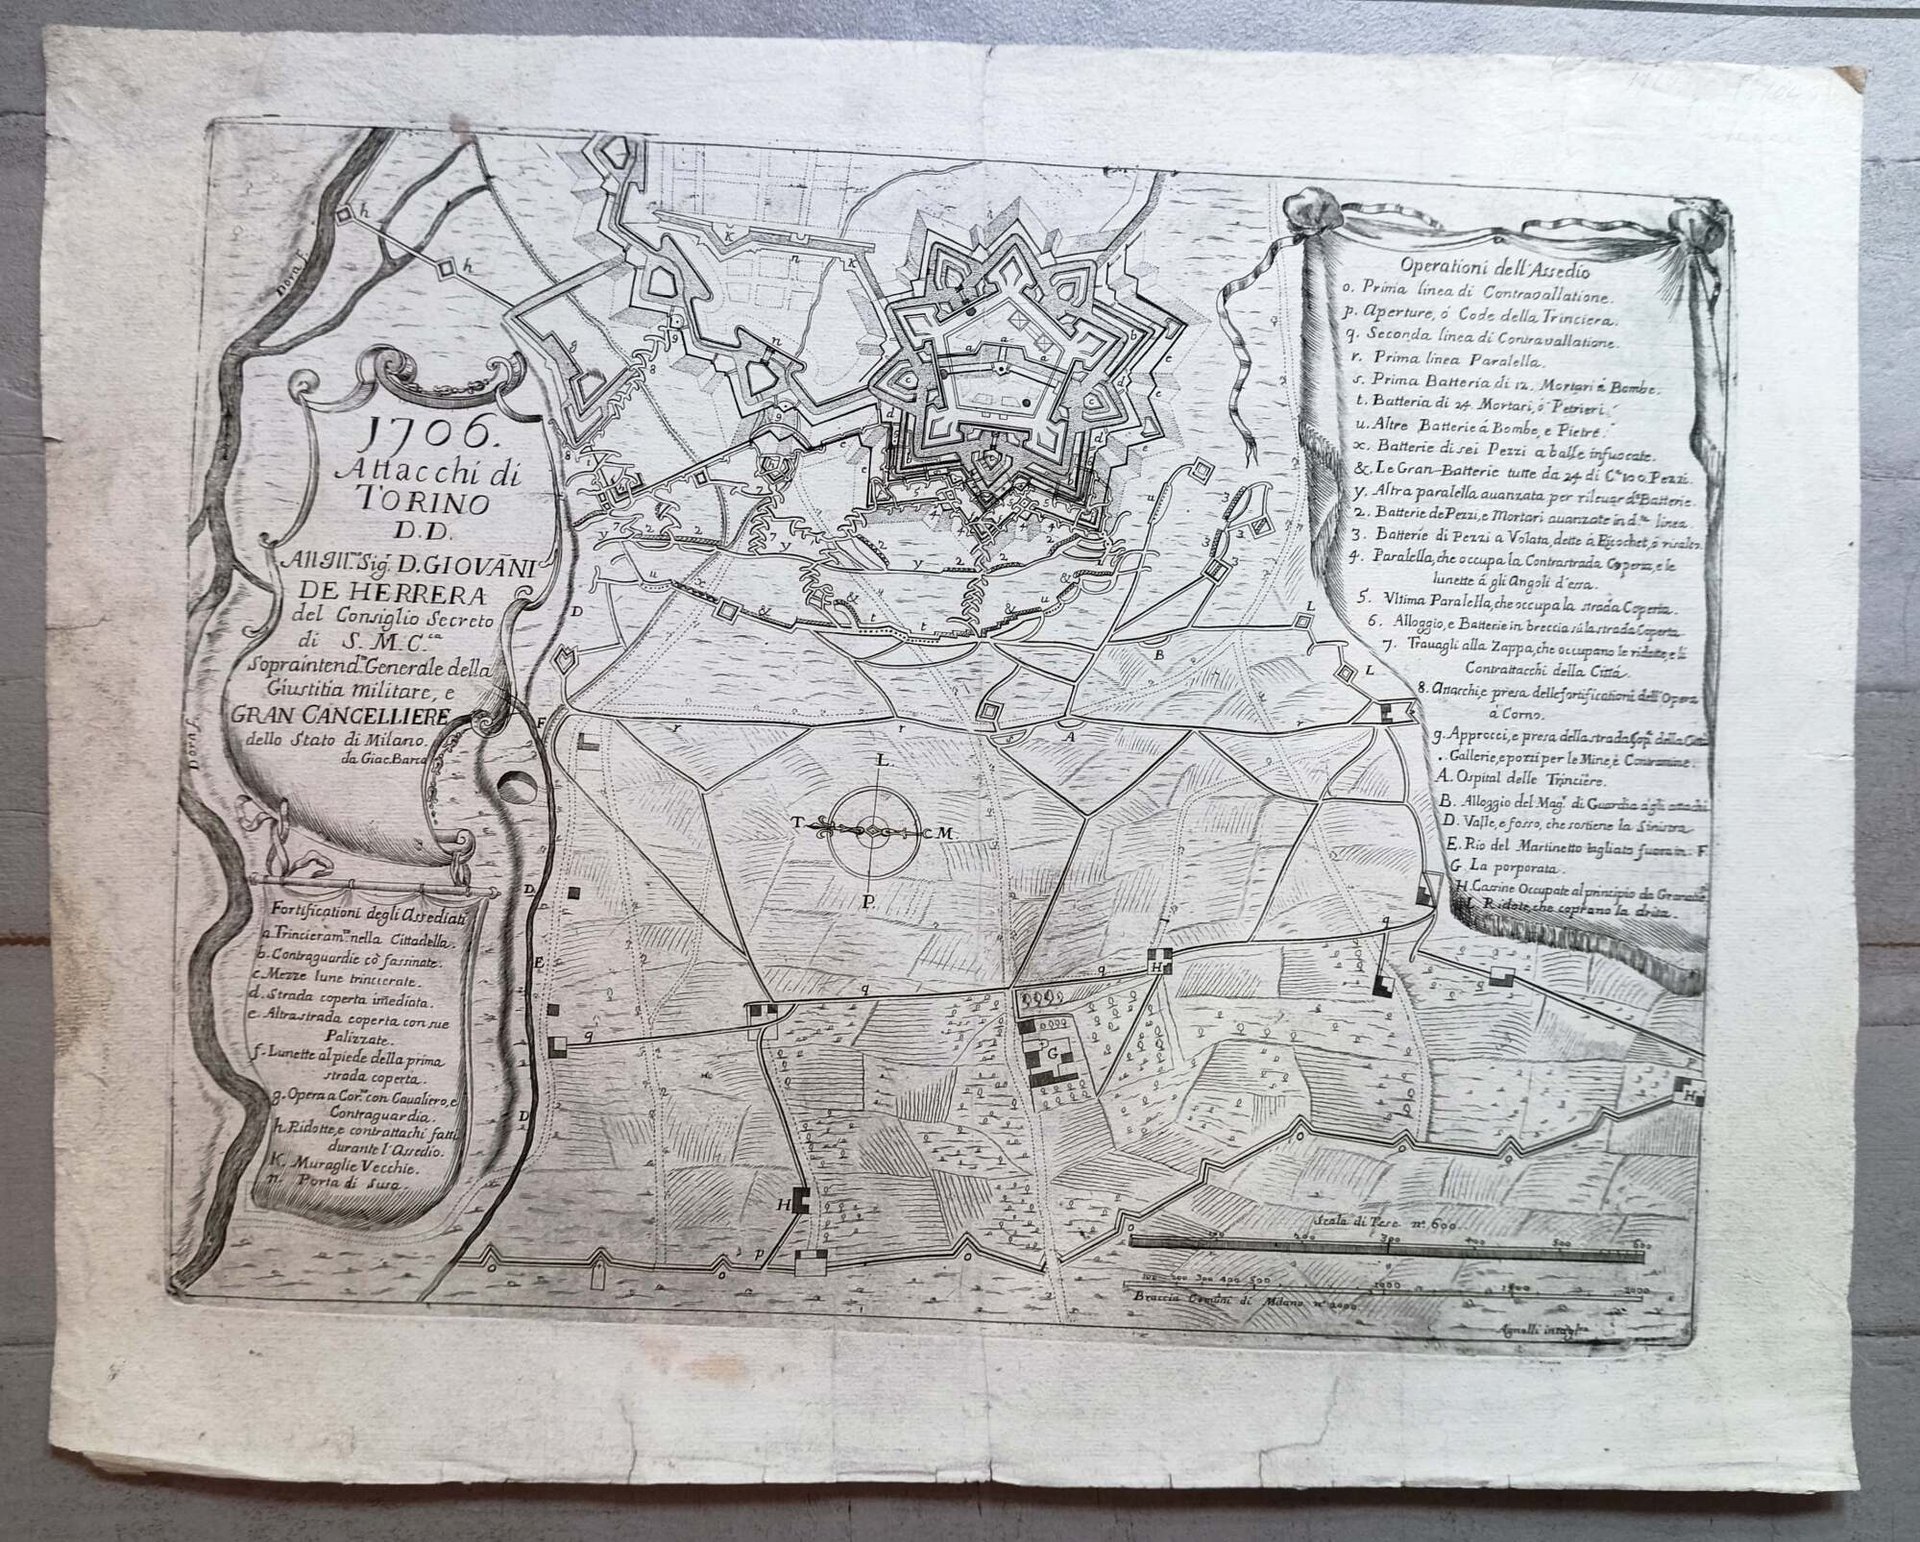 1706.
Attacchi di
TORINO
D. D.
All' Ill.^mo Sig. D. GIOVANI
DE HERRERA
del Consiglio Secreto
di S. M. C.^ca
Sopraintend.^te Generale della
Giustitia militare, e
GRAN CANCELLIERE
dello Stato di Milano.
da Giac. Barca
Fortificationi degli Assediati
a. Trincieram.^ti nella Cittadella.
b. Contraguardie cō fassinate.
c. Mezze lune trincierate.
d. Strada coperta imediata.
e. Altra strada coperta con sue
Palizzate.
f. Lunette al piede della prima
strada coperta.
g. Opera a Cor.^no con Caualiero, e
Contraguardia.
h. Ridotte, e contrattachi fatti
durante l'Assedio.
K. Muraglie Vecchie.
n. Porta di Susa.
Operationi dell'Assedio
o. Prima linea di Contravallatione.
p. Aperture, ó Code della Trinciera.
q. Seconda linea di Contravallatione.
r. Prima linea Paralella.
s. Prima Batteria di 12. Mortari á Bombe.
t. Batteria di 24 Mortari, ó Petrieri.
u. Altre Batterie á Bombe, e Pietre.
x. Batterie di sei Pezzi a balle infuocate.
&. Le Gran-Batterie tutte da 24 di C.^ne 100. Pezzi.
y. Altra paralella auanzata per rileuar d.^e Batterie.
2. Batterie de Pezzi, e Mortari auanzate in d.^ta linea.
3. Batterie di Pezzi à Volata, dette á Ricochet, ó risalto.
4. Paralella, che occupa la Contrastrada Coperta, e le
lunette á gli Angoli d'essa.
5. Vltima Paralella, che occupa la strada Coperta.
6. Alloggio, e Batterie in breccia sú la strada Coperta
7. Trauagli alla Zappa, che occupano le ridotte, e li
Contrattacchi della Cittá.
8. Attacchi, e presa delle fortificationi dell'Opera
á Corno.
9. Approcci, e presa della strada Cop.^ta della Cittá
. Gallerie, e pozzi per le Mine, é Contramine.
A. Ospital delle Trincière.
B. Alloggio del Mag.^r di Guardia agli attachi
D. Valle, e fosso, che sostiene la Sinistra
E. Rio del Martinetto tagliato fuora in F.
G La porporata.
H. Cassine Occupate al principio da Granatie.^ri
L. Ridote, che coprano la drita.
Dora f.
Dora f.
L.
T
M.
P.
Scala di Tese n.^o 600.
100 200 300 400 500 600
100 200 300 400 500 1000 1500 2000
Braccia Comuni di Milano n.^o 2000.
Agnelli intagl.^re